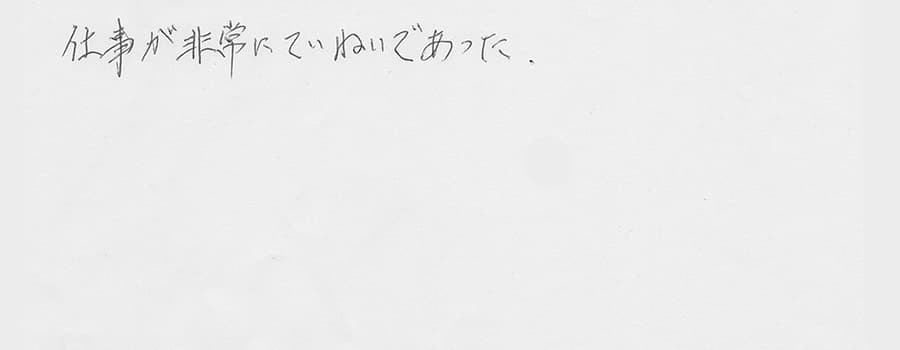 仕事が非常にていねいであった.